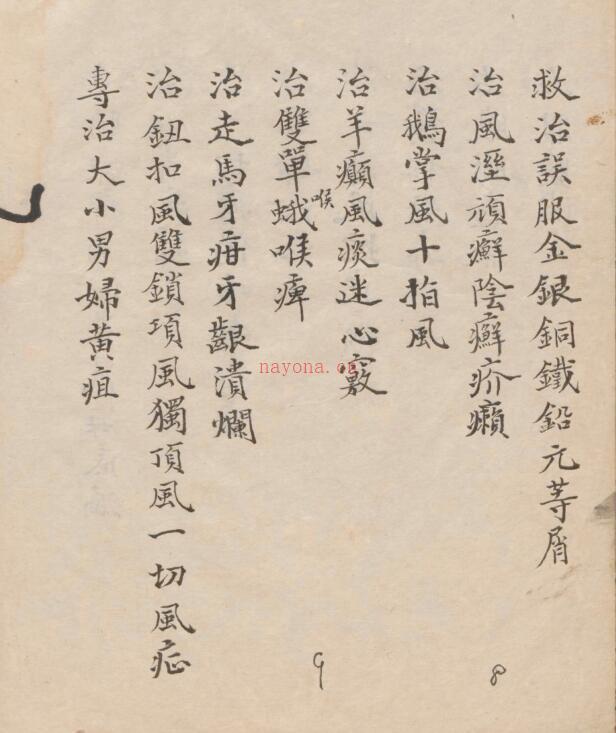 救治誤服金銀銅鐵鉛元等屑
治風溼頑癬陰癬疥癩
治鵝掌風十指風
治羊癲風痰迷心竅
治雙單蛾喉痺
喉
治走馬牙疳牙齦潰爛
治鈕扣風雙鎖項風獨頂風一切風症
專治大小男婦黃疸
8
9
nayona.cn